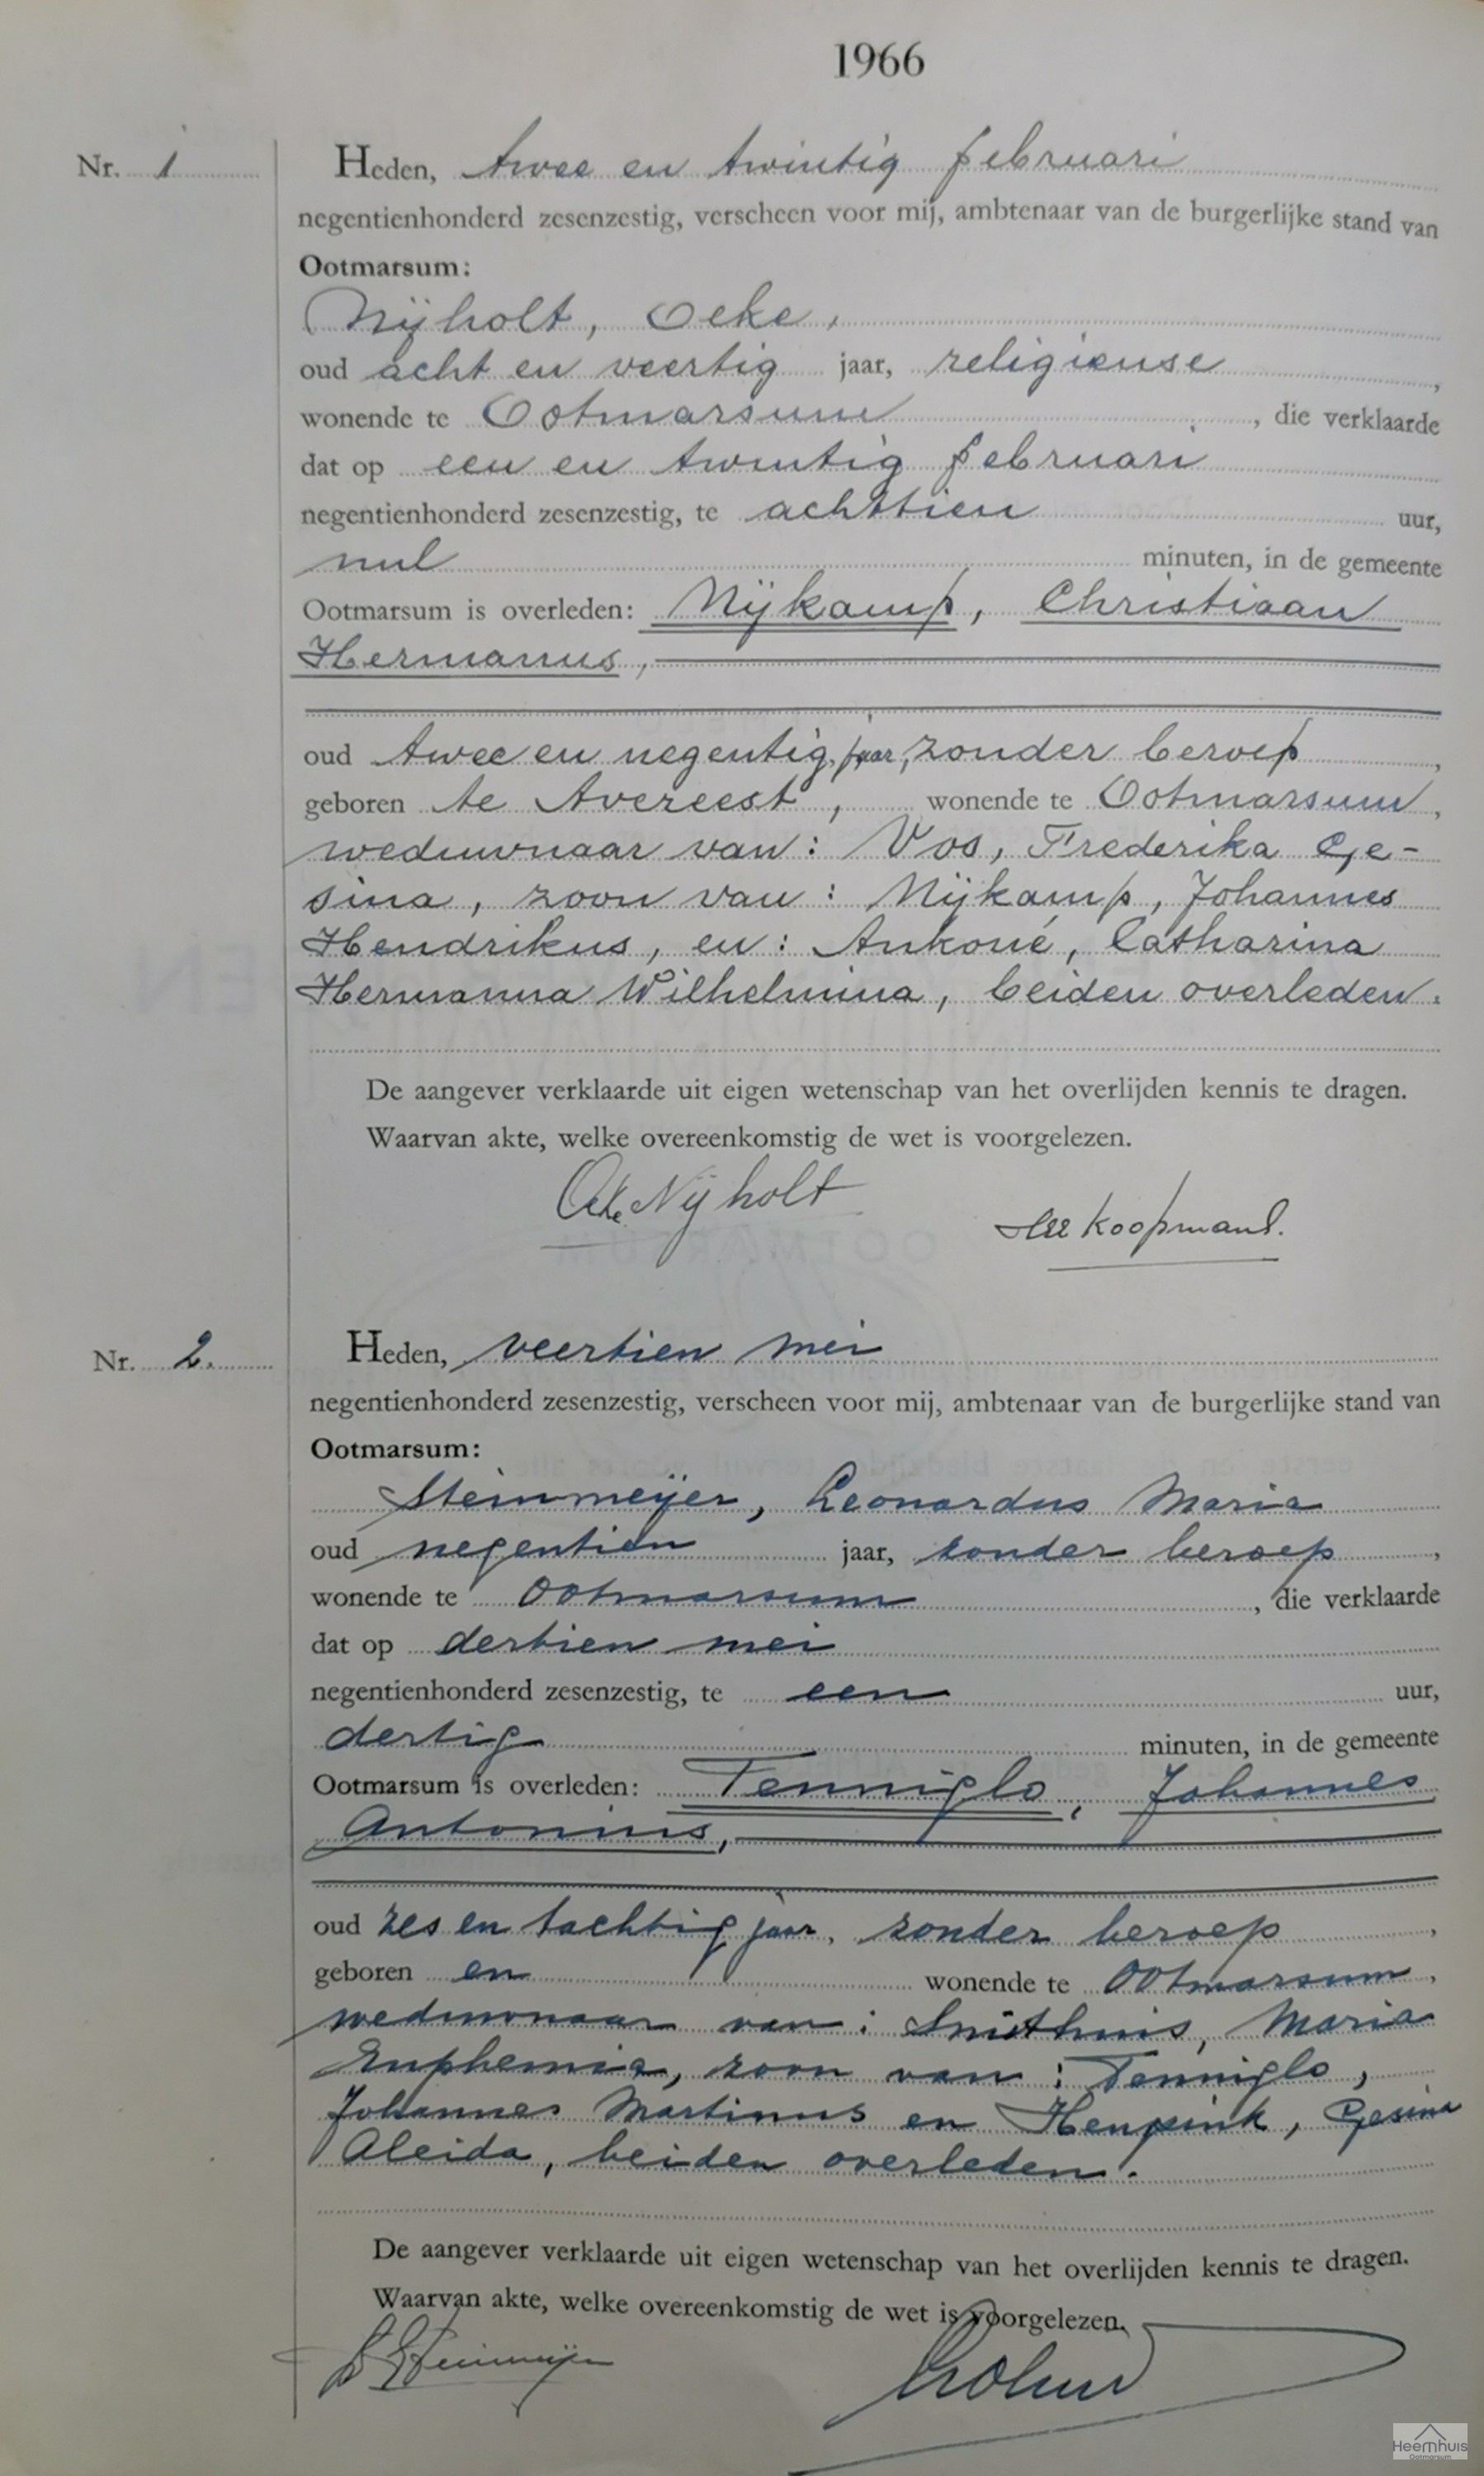 1966
Nr. 1
Heden, twee en twintig februari
negentienhonderd zesenzestig, verscheen voor mij, ambtenaar van de burgerlijke stand van
Ootmarsum:
Nijholt, Oeke,
oud acht en veertig jaar, religieuse,
wonende te Ootmarsum, die verklaarde
dat op een en twintig februari
negentienhonderd zesenzestig, te achttien uur,
nul minuten, in de gemeente
Ootmarsum is overleden: Nijkamp, Christiaan
Hermanus,
oud twee en negentig jaar, zonder beroep,
geboren te Avereest, wonende te Ootmarsum,
weduwnaar van: Vos, Frederika Ge-
sina, zoon van: Nijkamp, Johannes
Hendrikus, en: Ankoné, Catharina
Hermanna Wilhelmina, beiden overleden.
De aangever verklaarde uit eigen wetenschap van het overlijden kennis te dragen.
Waarvan akte, welke overeenkomstig de wet is voorgelezen.
Oeke Nijholt
Koopmans.
Nr. 2.
Heden, veertien mei
negentienhonderd zesenzestig, verscheen voor mij, ambtenaar van de burgerlijke stand van
Ootmarsum:
Steinmeijer, Leonardus Maria
oud negentien jaar, zonder beroep,
wonende te Ootmarsum, die verklaarde
dat op dertien mei
negentienhonderd zesenzestig, te een uur,
dertig minuten, in de gemeente
Ootmarsum is overleden: Tenniglo, Johannes
Antonius,
oud zes en tachtig jaar, zonder beroep,
geboren en wonende te Ootmarsum,
weduwnaar van: Smithuis, Maria
Euphemia, zoon van: Tenniglo,
Johannes Martinus en Henpink, Gesina
Aleida, beiden overleden.
De aangever verklaarde uit eigen wetenschap van het overlijden kennis te dragen.
Waarvan akte, welke overeenkomstig de wet is voorgelezen.
L Steinmeijer
Heemhuis
Ootmarsum